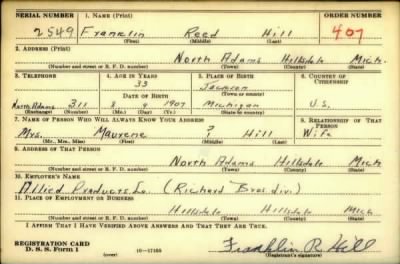 SERIAL NUMBER 1. NAME (Print) ORDER NUMBER
2549 Franklin Reed Hill 407
(First) (Middle) (Last)
2. ADDRESS (Print)
North Adams Hillsdale Mich
(Number and street or R. F. D. number) (Town) (County) (State)
3. TELEPHONE 4. AGE IN YEARS 5. PLACE OF BIRTH 6. COUNTRY OF CITIZENSHIP
33 Jackson
DATE OF BIRTH (Town or county)
North Adams 311 8 9 1907 Michigan U.S.
(Exchange) (Number) (Mo.) (Day) (Yr.) (State or country)
7. NAME OF PERSON WHO WILL ALWAYS KNOW YOUR ADDRESS 8. RELATIONSHIP OF THAT PERSON
Mrs. Maurene ? Hill Wife
(Mr., Mrs., Miss) (First) (Middle) (Last)
9. ADDRESS OF THAT PERSON
North Adams Hillsdale Mich
(Number and street or R. F. D. number) (Town) (County) (State)
10. EMPLOYER'S NAME
Allied Products Co. (Richard Bros. div.)
11. PLACE OF EMPLOYMENT OR BUSINESS
Hillsdale Hillsdale Mich
(Number and street or R. F. D. number) (Town) (County) (State)
I AFFIRM THAT I HAVE VERIFIED ABOVE ANSWERS AND THAT THEY ARE TRUE.
REGISTRATION CARD
D. S. S. Form 1 (over) 16—17105 Franklin R. Hill
(Registrant's signature)